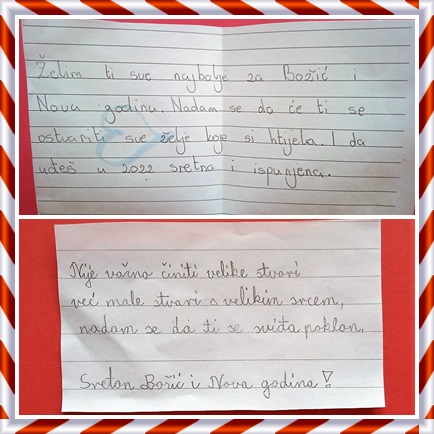 Želim ti sve najbolje za Božić i
Novu godinu. Nadam se da će ti se
ostvariti sve želje koje si htijela. I da
uđeš u 2022 sretna i ispunjena.
Nije važno činiti velike stvari
već male stvari s velikim srcem,
nadam se da ti se sviđa poklon.
Sretan Božić i Nova godina!